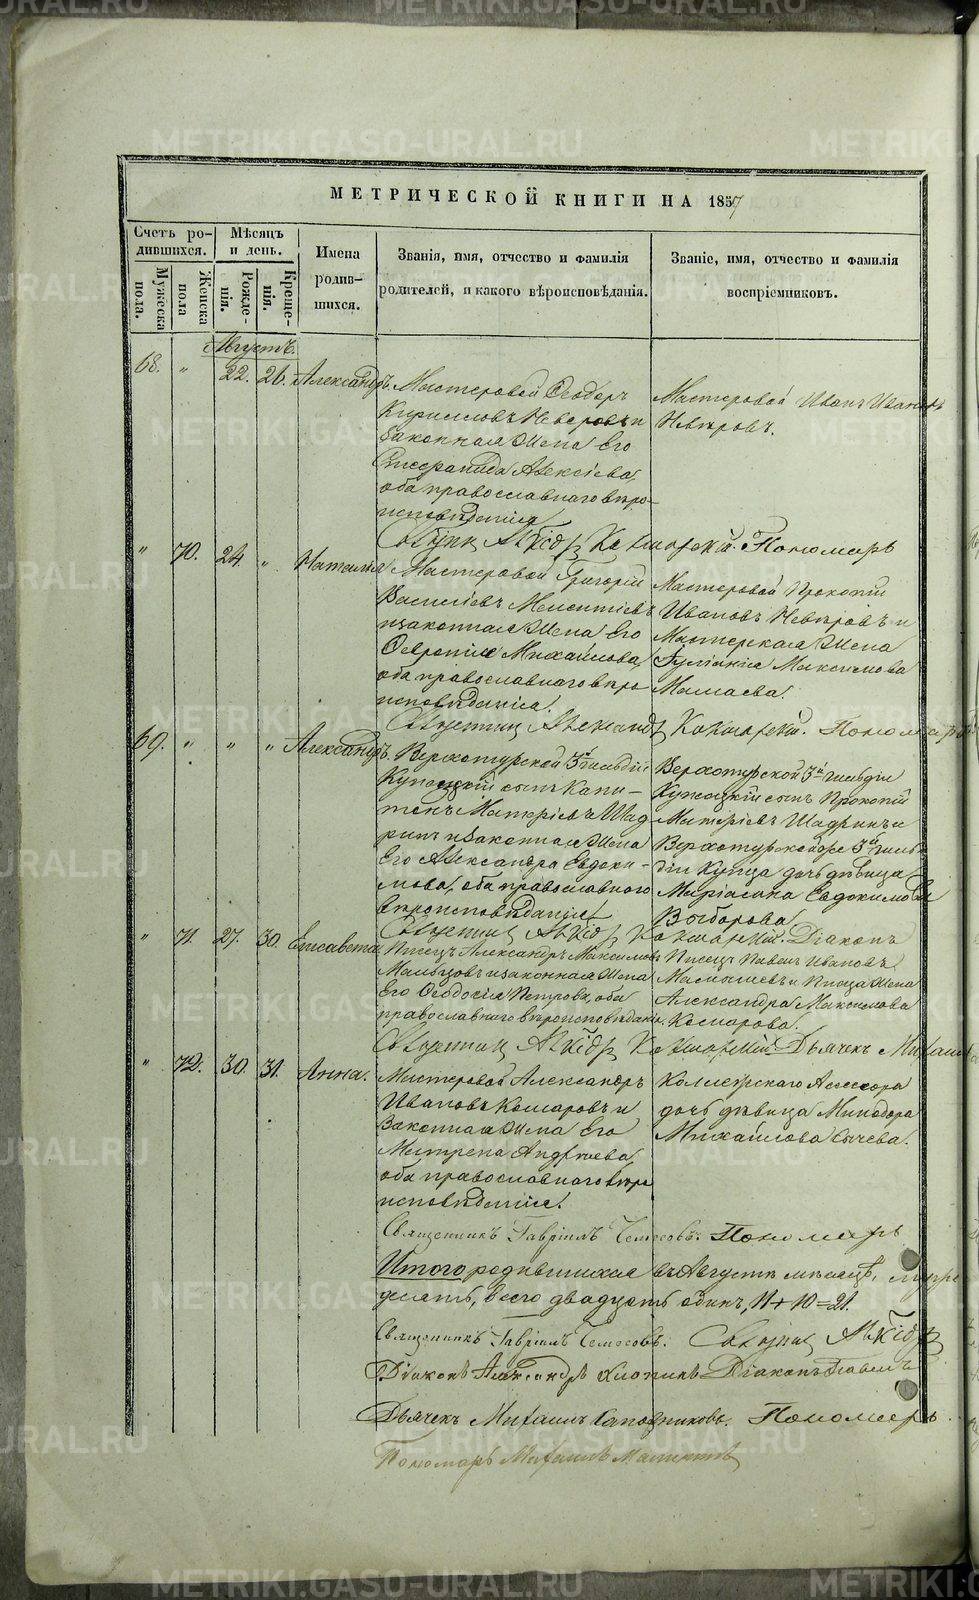 METRIKI.GASO-URAL.RU
МЕТРИЧЕСКОЙ КНИГИ НА 1857
Счетъ родившихся.
Мужеска пола.
Женска пола
Мѣсяцъ и день.
Рожденія.
Крещенія.
Имена родившихся.
Званія, имя, отчество и фамилія
родителей, и какого вѣроисповѣданія.
Званіе, имя, отчество и фамилія
воспріемниковъ.
Августъ.
68. " 22. 26. Александръ.
Мастеровой Ѳеодоръ
Кирилловъ Невѣровъ и
законная жена Его
Алексѣева,
оба православнаго вѣро-
исповѣданія
Мастеровой Иванъ Ивановъ
Невѣровъ.
Кокшарскій. Пономарь
" 70. 24. " Наталья
Мастеровой Григорій
Василіевъ Мелентіевъ
и законная жена Его
Михайлова,
оба православнаго вѣро
исповѣданія.
Мастеровой Прокопій
Ивановъ Невѣровъ и
Мастерская жена
Іуліанія Максимова
Мамаева.
Священникъ Александръ Кокшарскій. Пономарь
69. " " " Александръ.
Верхотурской 3й гильдіи
Купеческій сынъ Капи-
тонъ Матвѣевъ Шад
ринъ и законная жена
Его Александра Евдоки-
мова, оба православнаго
вѣроисповѣданія
Верхотурской 3й гильдіи
Купеческій сынъ Прокопій
Матвѣевъ Шадринъ и
Верхотурского 3й гиль
діи Купца дочь дѣвица
Евдокимова
Выборова
Священникъ Кокшарскій. Діаконъ
" 71. 27. 30. Елисавета
Писецъ Александръ Максимовъ
Мальцовъ и законная жена
Его Ѳеодосія Петрова, оба
православнаго вѣроисповѣданія.
Писецъ Павелъ Ивановъ
и Писца жена
Александра Максимова
Комарова.
Священникъ Кокшарскій. Дьячекъ Михаилъ
" 72. 30. 31. Анна.
Мастеровой Александръ
Ивановъ Комаровъ и
законная жена Его
Матрена Андреева,
оба православнаго вѣро
исповѣданія.
Коллежскаго Ассесора
дочь дѣвица Минодора
Михайлова Сычева.
Священникъ Гавріилъ Пономарь
Итого родившихся въ Августѣ мѣсяцѣ,
всего двадцать одинъ, 11 + 10 = 21.
Священникъ Гавріилъ
Діаконъ Александръ Діаконъ Павелъ
Дьячекъ Михаилъ Сапожниковъ. Пономарь
Пономарь Михаилъ